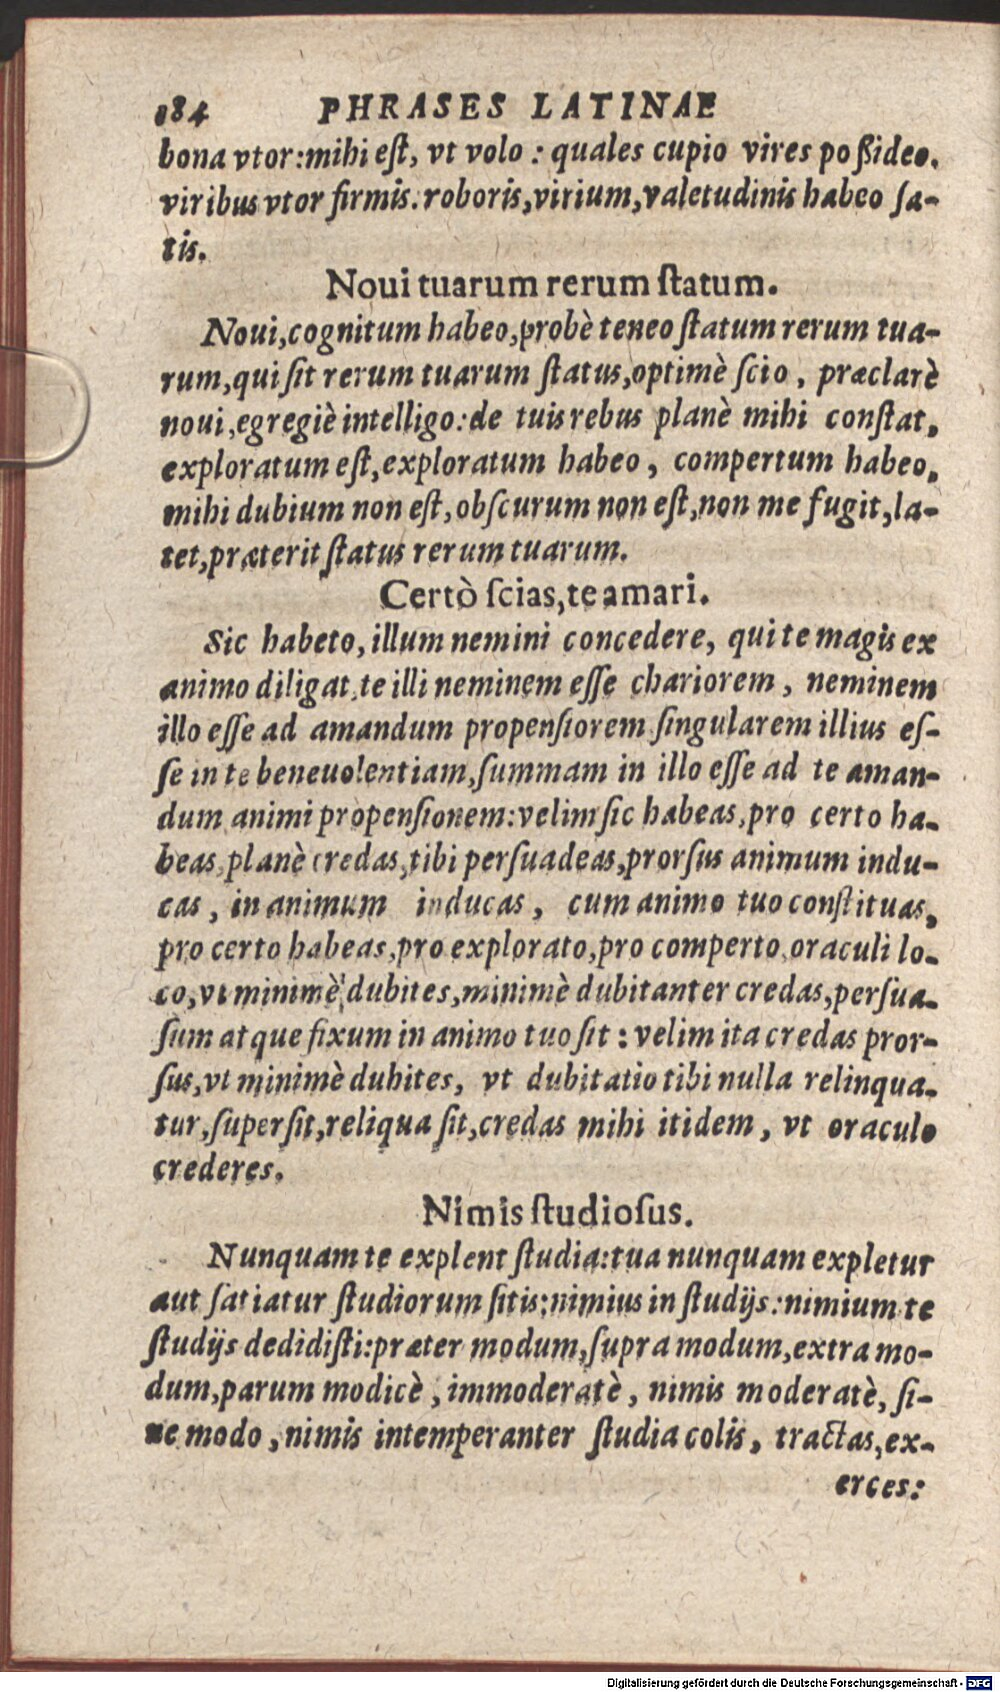 184 PHRASES LATINAE
bona vtor: mihi eſt, vt volo : quales cupio vires poßideo.
viribus vtor firmis. roboris, virium, valetudinis habeo ſa-
tis.
Noui tuarum rerum ſtatum.
Noui, cognitum habeo, probè teneo ſtatum rerum tua-
rum, qui ſit rerum tuarum ſtatus, optimè ſcio, præclarè
noui, egregiè intelligo: de tuis rebus planè mihi conſtat,
exploratum eſt, exploratum habeo, compertum habeo,
mihi dubium non eſt, obſcurum non eſt, non me fugit, la-
tet, præterit ſtatus rerum tuarum.
Certò ſcias, te amari.
Sic habeto, illum nemini concedere, qui te magis ex
animo diligat, te illi neminem eſſe chariorem, neminem
illo eſſe ad amandum propenſiorem ſingularem illius eſ-
ſe in te beneuolentiam, ſummam in illo eſſe ad te aman-
dum animi propenſionem: velim ſic habeas, pro certo ha-
beas, planè credas, tibi perſuadeas, prorſus animum indu-
cas, in animum inducas, cum animo tuo conſtituas,
pro certo habeas, pro explorato, pro comperto, oraculi lo-
co, vt minimè dubites, minimè dubitanter credas, perſua-
ſum atque fixum in animo tuo ſit: velim ita credas pror-
ſus, vt minimè dubites, vt dubitatio tibi nulla relinqua-
tur, ſuperſit, reliqua ſit, credas mihi itidem, vt oraculo
crederes.
Nimis ſtudioſus.
Nunquam te explent ſtudia: tua nunquam expletur
aut ſatiatur ſtudiorum ſitis: nimius in ſtudijs: nimium te
ſtudijs dedidiſti: præter modum, ſupra modum, extra mo-
dum, parum modicè, immoderatè, nimis moderatè, ſi-
ne modo, nimis intemperanter ſtudia colis, tractas, ex-
erces:
Digitalisierung gefördert durch die Deutsche Forschungsgemeinschaft - DFG